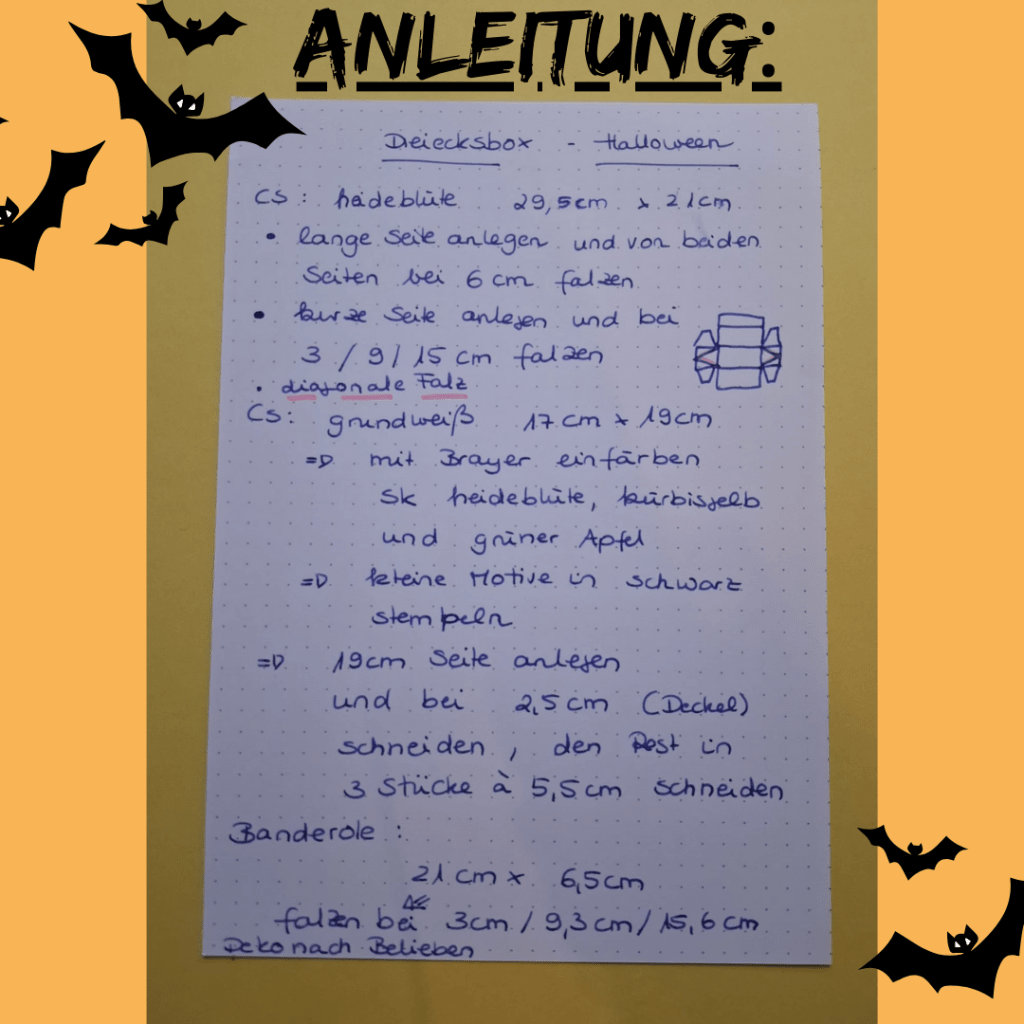 ANLEITUNG:
Dreiecksbox - Halloween
CS: heideblüte 29,5cm x 21cm
• lange Seite anlegen und von beiden
Seiten bei 6 cm falzen
• kurze Seite anlegen und bei
3 / 9 / 15 cm falzen
• diagonale Falz
CS: grundweiß 17 cm x 19cm
=D mit Brayer einfärben
SK heideblüte, kürbisgelb
und grüner Apfel
=D kleine Motive in schwarz
stempeln
=D 19cm Seite anlegen
und bei 2,5cm (Deckel)
schneiden, den Rest in
3 Stücke à 5,5cm schneiden
Banderole:
21 cm x 6,5cm
falzen bei 3cm / 9,3cm / 15,6 cm
Deko nach Belieben